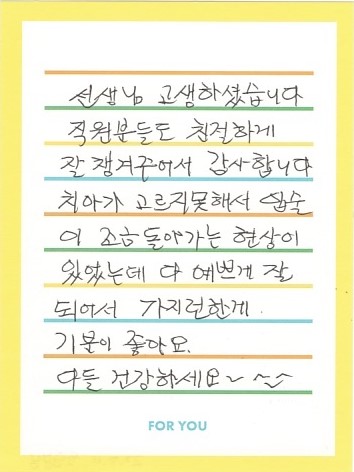 선생님 고생하셨습니다
직원분들도 친절하게
잘 챙겨주어서 감사합니다
치아가 고르지못해서 입술
이 조금 돌아가는 현상이
있었는데 다 예쁘게 잘
되어서 가지런한게
기분이 좋아요.
다들 건강하세요~ ^~^
FOR YOU